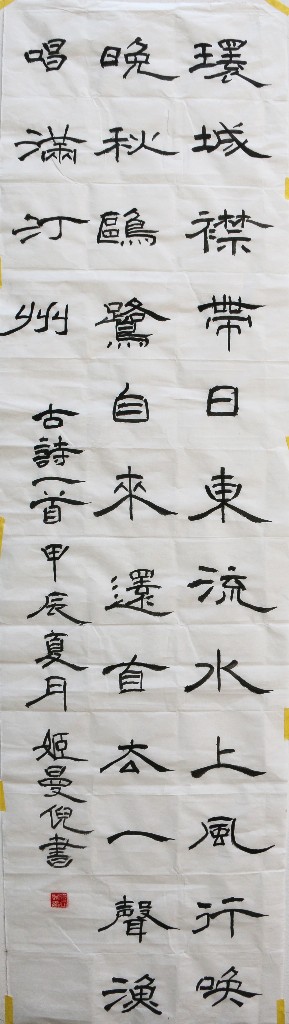 環城襟帶日東流水上風行喚
晚秋鷗鷺自來還自去一聲漁
唱滿汀州
古詩一首甲辰夏月姬曼倪書